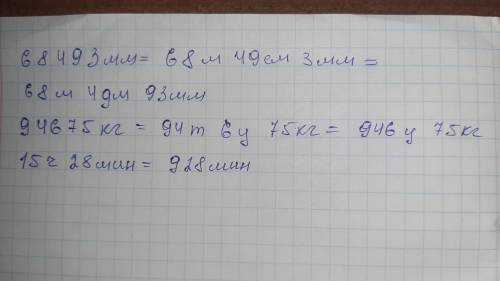 68493мм= 68м 49см 3мм=
68м 4дм 93мм
94675кг = 94т 6ц 75кг= 946ц 75кг
15ч 28мин= 928мин